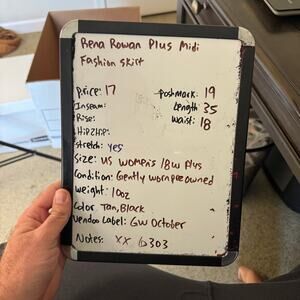 Rena Rowan Plus Midi
Fashion skirt
Price: 17 poshmark: 19
Inseam: Length: 35
Rise: waist: 18
Hip2Hip:
stretch: yes
Size: US women's 18W Plus
Condition: Gently worn preowned
weight: 10oz
Color Tan, Black
Vendoo Label: GW October
Notes: XX 6303